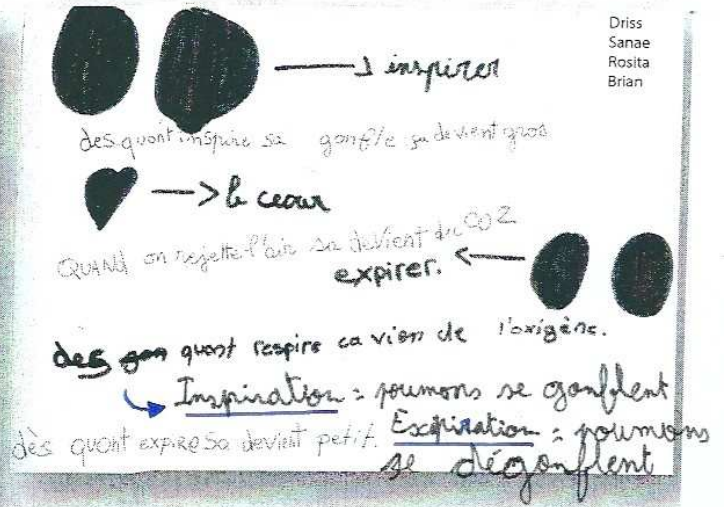 Driss
Sanae
Rosita
Brian
inspirer
des quont inspire sa gonfle sa devient gros
le ceour
QUAND on rejette l'air sa devient du CO2
expirer.
des quont respire ca vien de l'oxigène.
Inspiration = poumons se gonflent
dès quont expire sa devient petit.
Expiration = poumons
se dégonflent